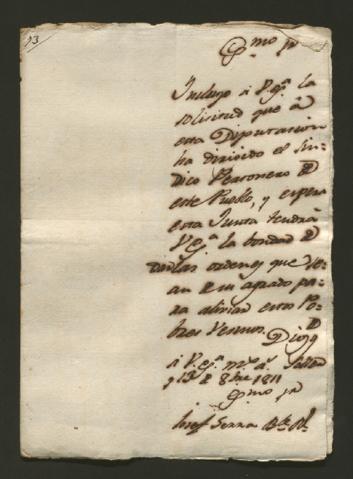 13
Exmo Sr
Incluyo á V.Exª la
solicitud que á
esta Diputacion
ha dirigido el Sin-
dico Personero de
este Pueblo, y espera
esta Junta tendrá
V.Exª la bondad de
dar las ordenes que se-
an de su agrado pa-
ra aliviar estos Po-
bres Vecinos. Dios
á V.Exª ms. as.
y 13 de 8bre 1811
Exmo Sr
Josef Serra